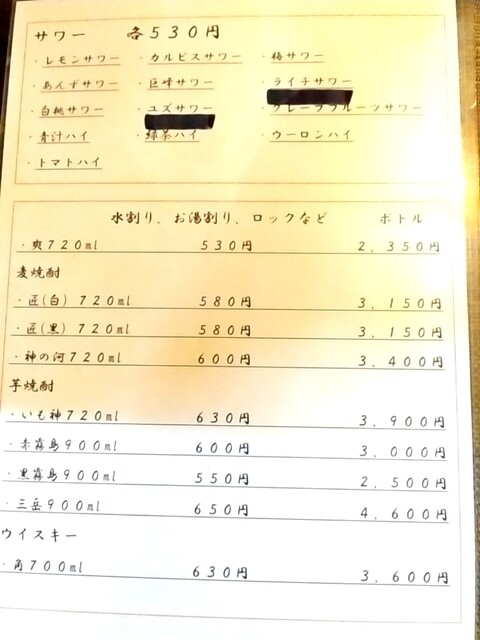 サワー　各５３０円
・レモンサワー ・カルピスサワー ・梅サワー
・あんずサワー ・巨峰サワー ・ライチサワー
・白桃サワー ・ユズサワー ・グレープフルーツサワー
・青汁ハイ ・緑茶ハイ ・ウーロンハイ
・トマトハイ
水割り、お湯割り、ロックなど ボトル
・爽７２０ml ５３０円 ２，３５０円
麦焼酎
・匠(白) ７２０ml ５８０円 ３，１５０円
・匠(黒) ７２０ml ５８０円 ３，１５０円
・神の河７２０ml ６００円 ３，４００円
芋焼酎
・いも神７２０ml ６３０円 ３，９００円
・赤霧島９００ml ６００円 ３，０００円
・黒霧島９００ml ５５０円 ２，５００円
・三岳９００ml ６５０円 ４，６００円
ウイスキー
・角７００ml ６３０円 ３，６００円